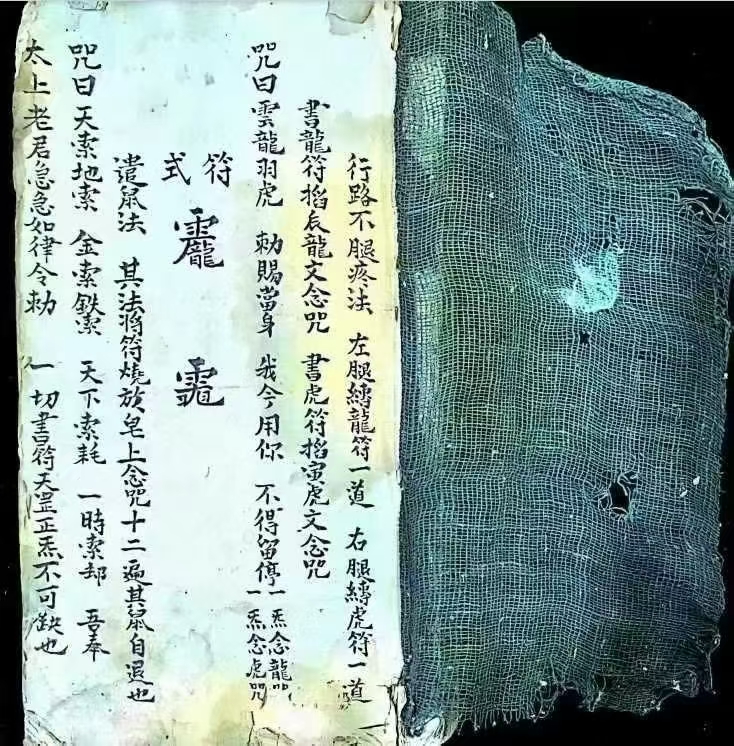 行路不腿疼法 左腿縳龍符一道 右腿縳虎符一道
書龍符搯辰龍文念咒 書虎符搯寅虎文念咒
咒曰 雲龍羽虎 勅賜當身 我今用你 不得留停 一炁念龍咒 一炁念虎咒
符式
靇 
遣鼠法 其法將符燒放皂上念咒十二遍其鼠自退也
咒曰 天索地索 金索鉄索 天下索耗 一時索却 吾奉
太上老君急急如律令勅 一切書符天罡正炁不可缺也